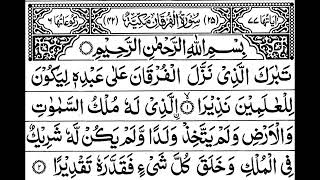 اٰیَاتُهَا ٧٧ (٢٥) سُوْرَةُ الْفُرْقَانِ مَكِّیَّةٌ (٤٢) رُكُوْعَاتُهَا ٦
بِسْمِ اللّٰهِ الرَّحْمٰنِ الرَّحِیْمِ
تَبٰرَكَ الَّذِیْ نَزَّلَ الْفُرْقَانَ عَلٰی عَبْدِهٖ لِیَكُوْنَ
لِلْعٰلَمِیْنَ نَذِیْرَا ۙ﴿١﴾ الَّذِیْ لَهٗ مُلْكُ السَّمٰوٰتِ
وَالْاَرْضِ وَلَمْ یَتَّخِذْ وَلَدًا وَّلَمْ یَكُنْ لَّهٗ شَرِیْكٌ
فِی الْمُلْكِ وَخَلَقَ كُلَّ شَیْءٍ فَقَدَّرَهٗ تَقْدِیْرًا ﴿٢﴾